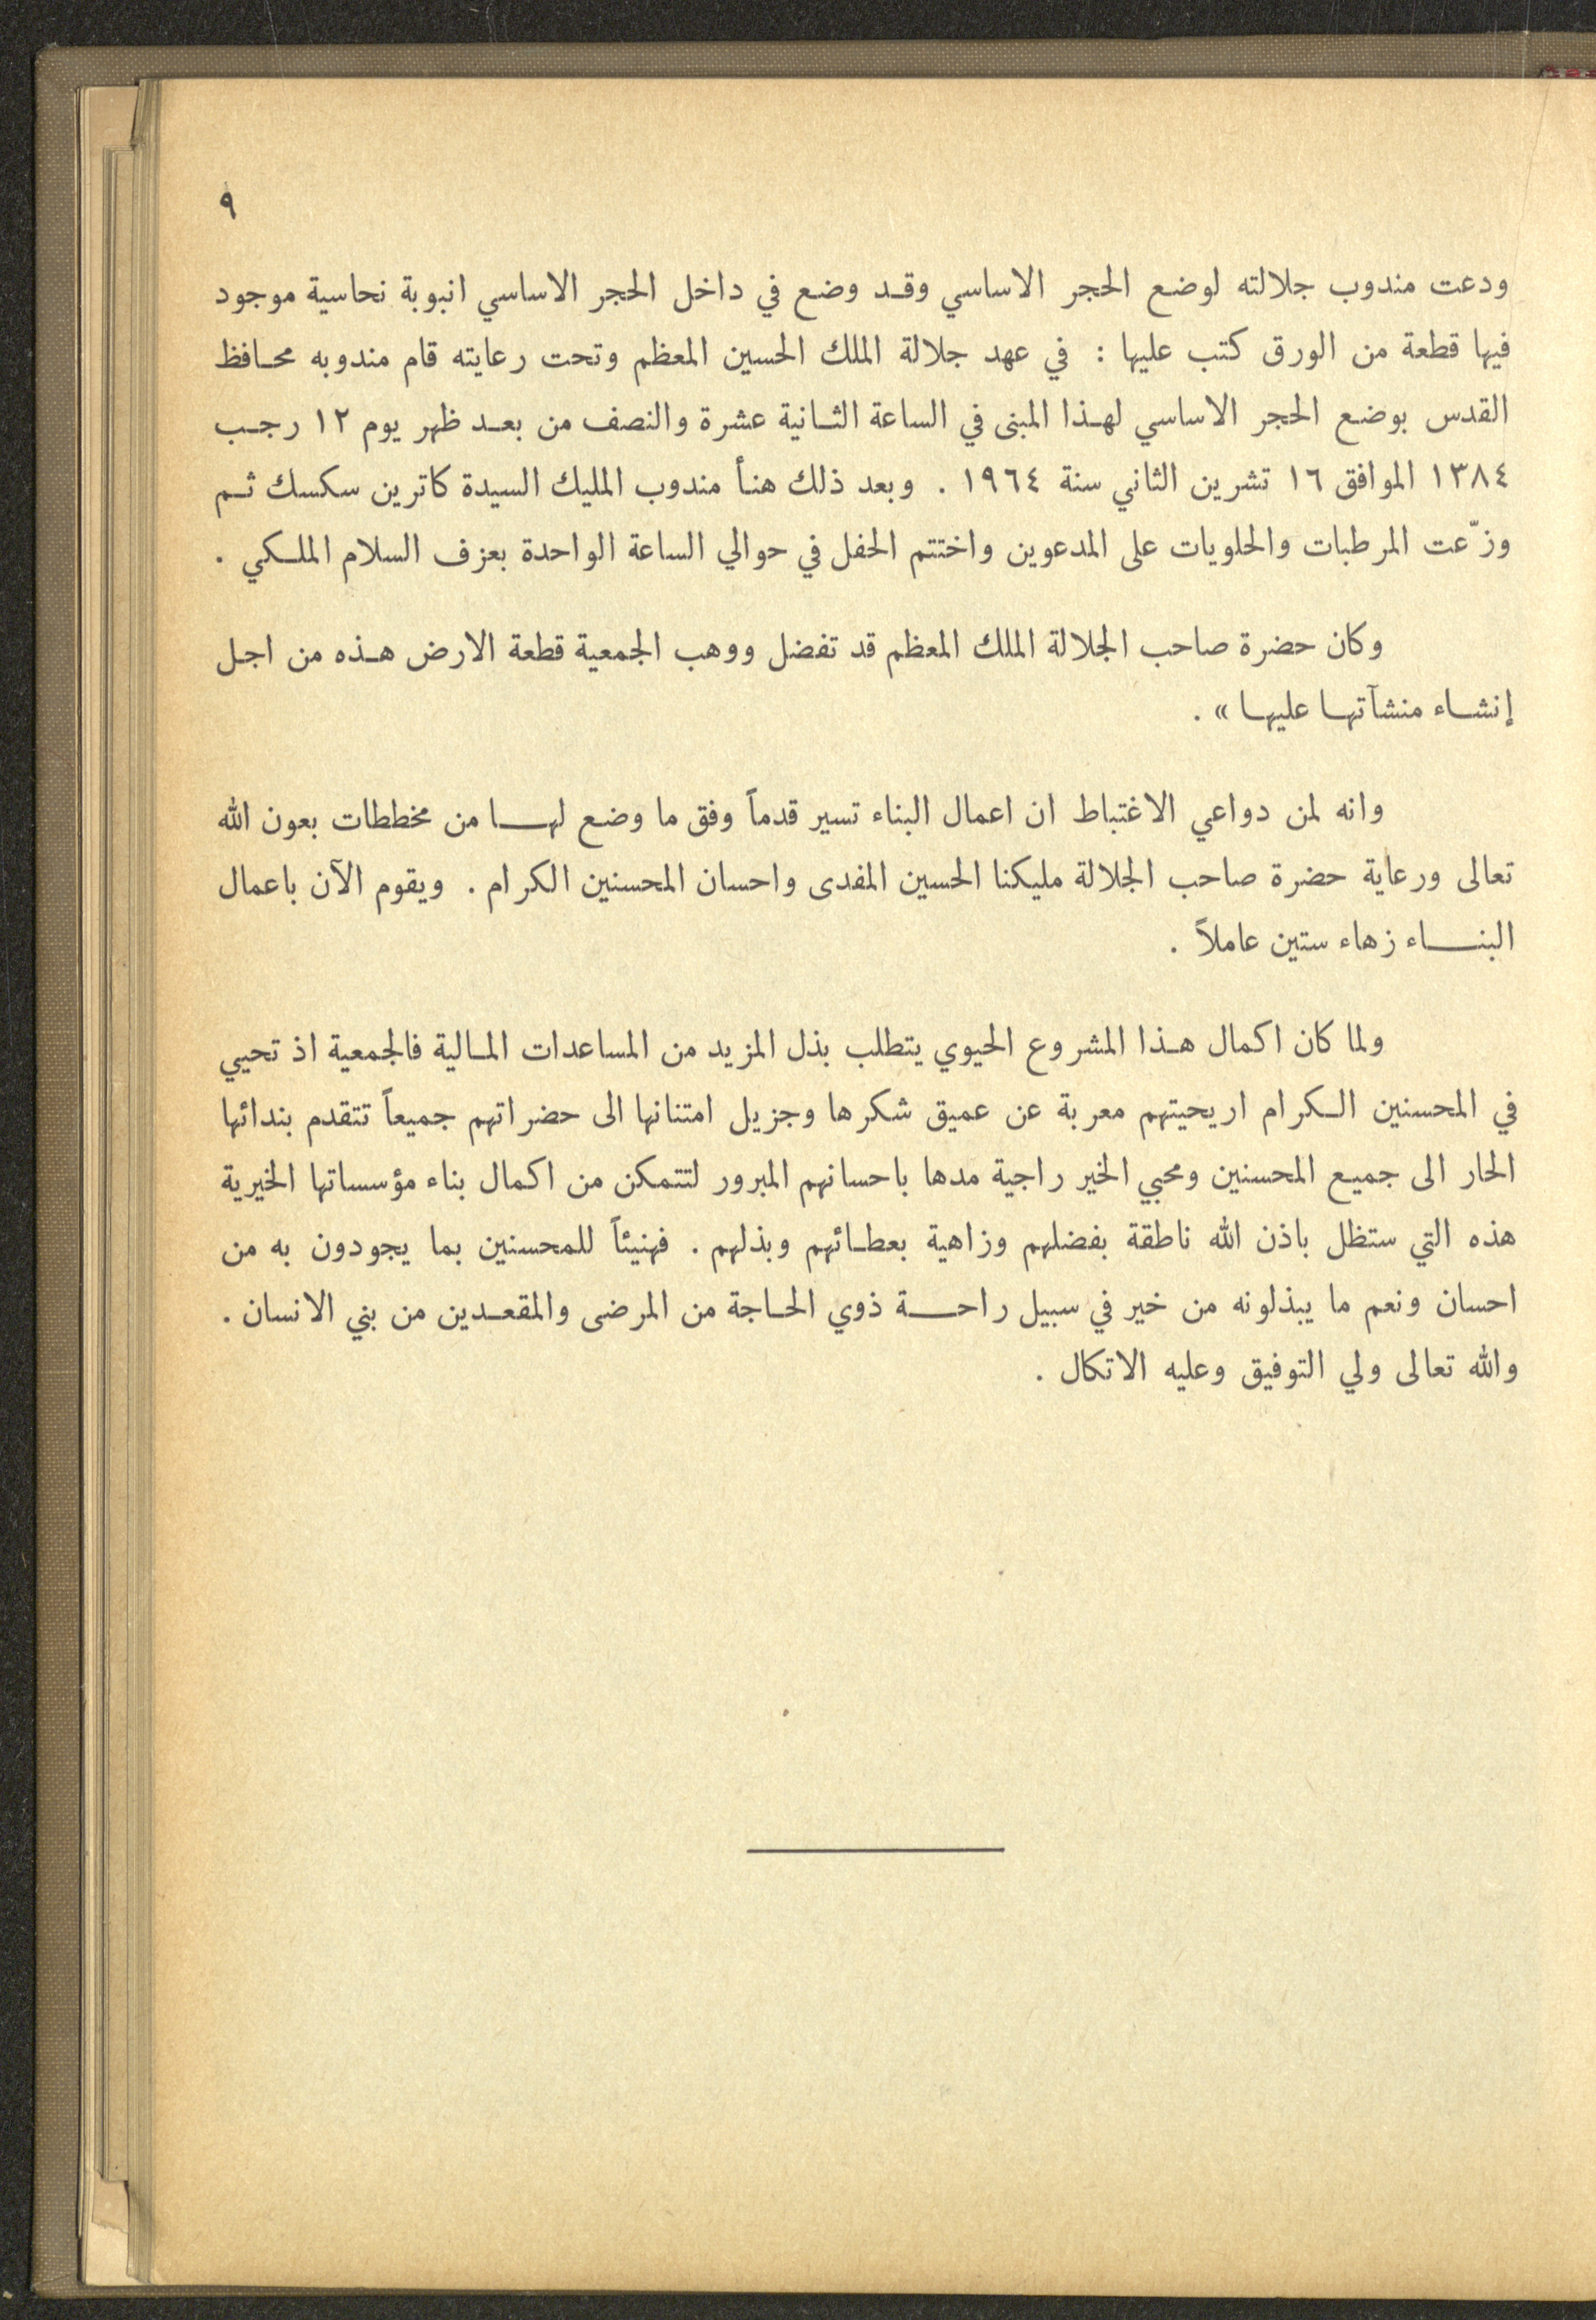 ٩
ودعت مندوب جلالته لوضع الحجر الاساسي وقد وضع في داخل الحجر الاساسي انبوبة نحاسية موجود
فيها قطعة من الورق كتب عليها : في عهد جلالة الملك الحسين المعظم وتحت رعايته قام مندوبه محافظ
القدس بوضع الحجر الاساسي لهذا المبنى في الساعة الثانية عشرة والنصف من بعد ظهر يوم ١٢ رجب
١٣٨٤ الموافق ١٦ تشرين الثاني سنة ١٩٦٤ . وبعد ذلك هنأ مندوب المليك السيدة كاترين سكسك ثم
وزّعت المرطبات والحلويات على المدعوين واختتم الحفل في حوالي الساعة الواحدة بعزف السلام الملكي .
وكان حضرة صاحب الجلالة الملك المعظم قد تفضل ووهب الجمعية قطعة الارض هذه من اجل
إنشاء منشآتها عليها » .
وانه لمن دواعي الاغتباط ان اعمال البناء تسير قدماً وفق ما وضع لها من مخططات بعون الله
تعالى ورعاية حضرة صاحب الجلالة مليكنا الحسين المفدى واحسان المحسنين الكرام . ويقوم الآن باعمال
البناء زهاء ستين عاملاً .
ولما كان اكمال هذا المشروع الحيوي يتطلب بذل المزيد من المساعدات المالية فالجمعية اذ تحيي
في المحسنين الكرام اريحيتهم معربة عن عميق شكرها وجزيل امتنانها الى حضراتهم جميعاً تتقدم بندائها
الحار الى جميع المحسنين ومحبي الخير راجية مدها باحسانهم المبرور لتتمكن من اكمال بناء مؤسساتها الخيرية
هذه التي ستظل باذن الله ناطقة بفضلهم وزاهية بعطائهم وبذلهم . فهنيئاً للمحسنين بما يجودون به من
احسان ونعم ما يبذلونه من خير في سبيل راحة ذوي الحاجة من المرضى والمقعدين من بني الانسان .
والله تعالى ولي التوفيق وعليه الاتكال .